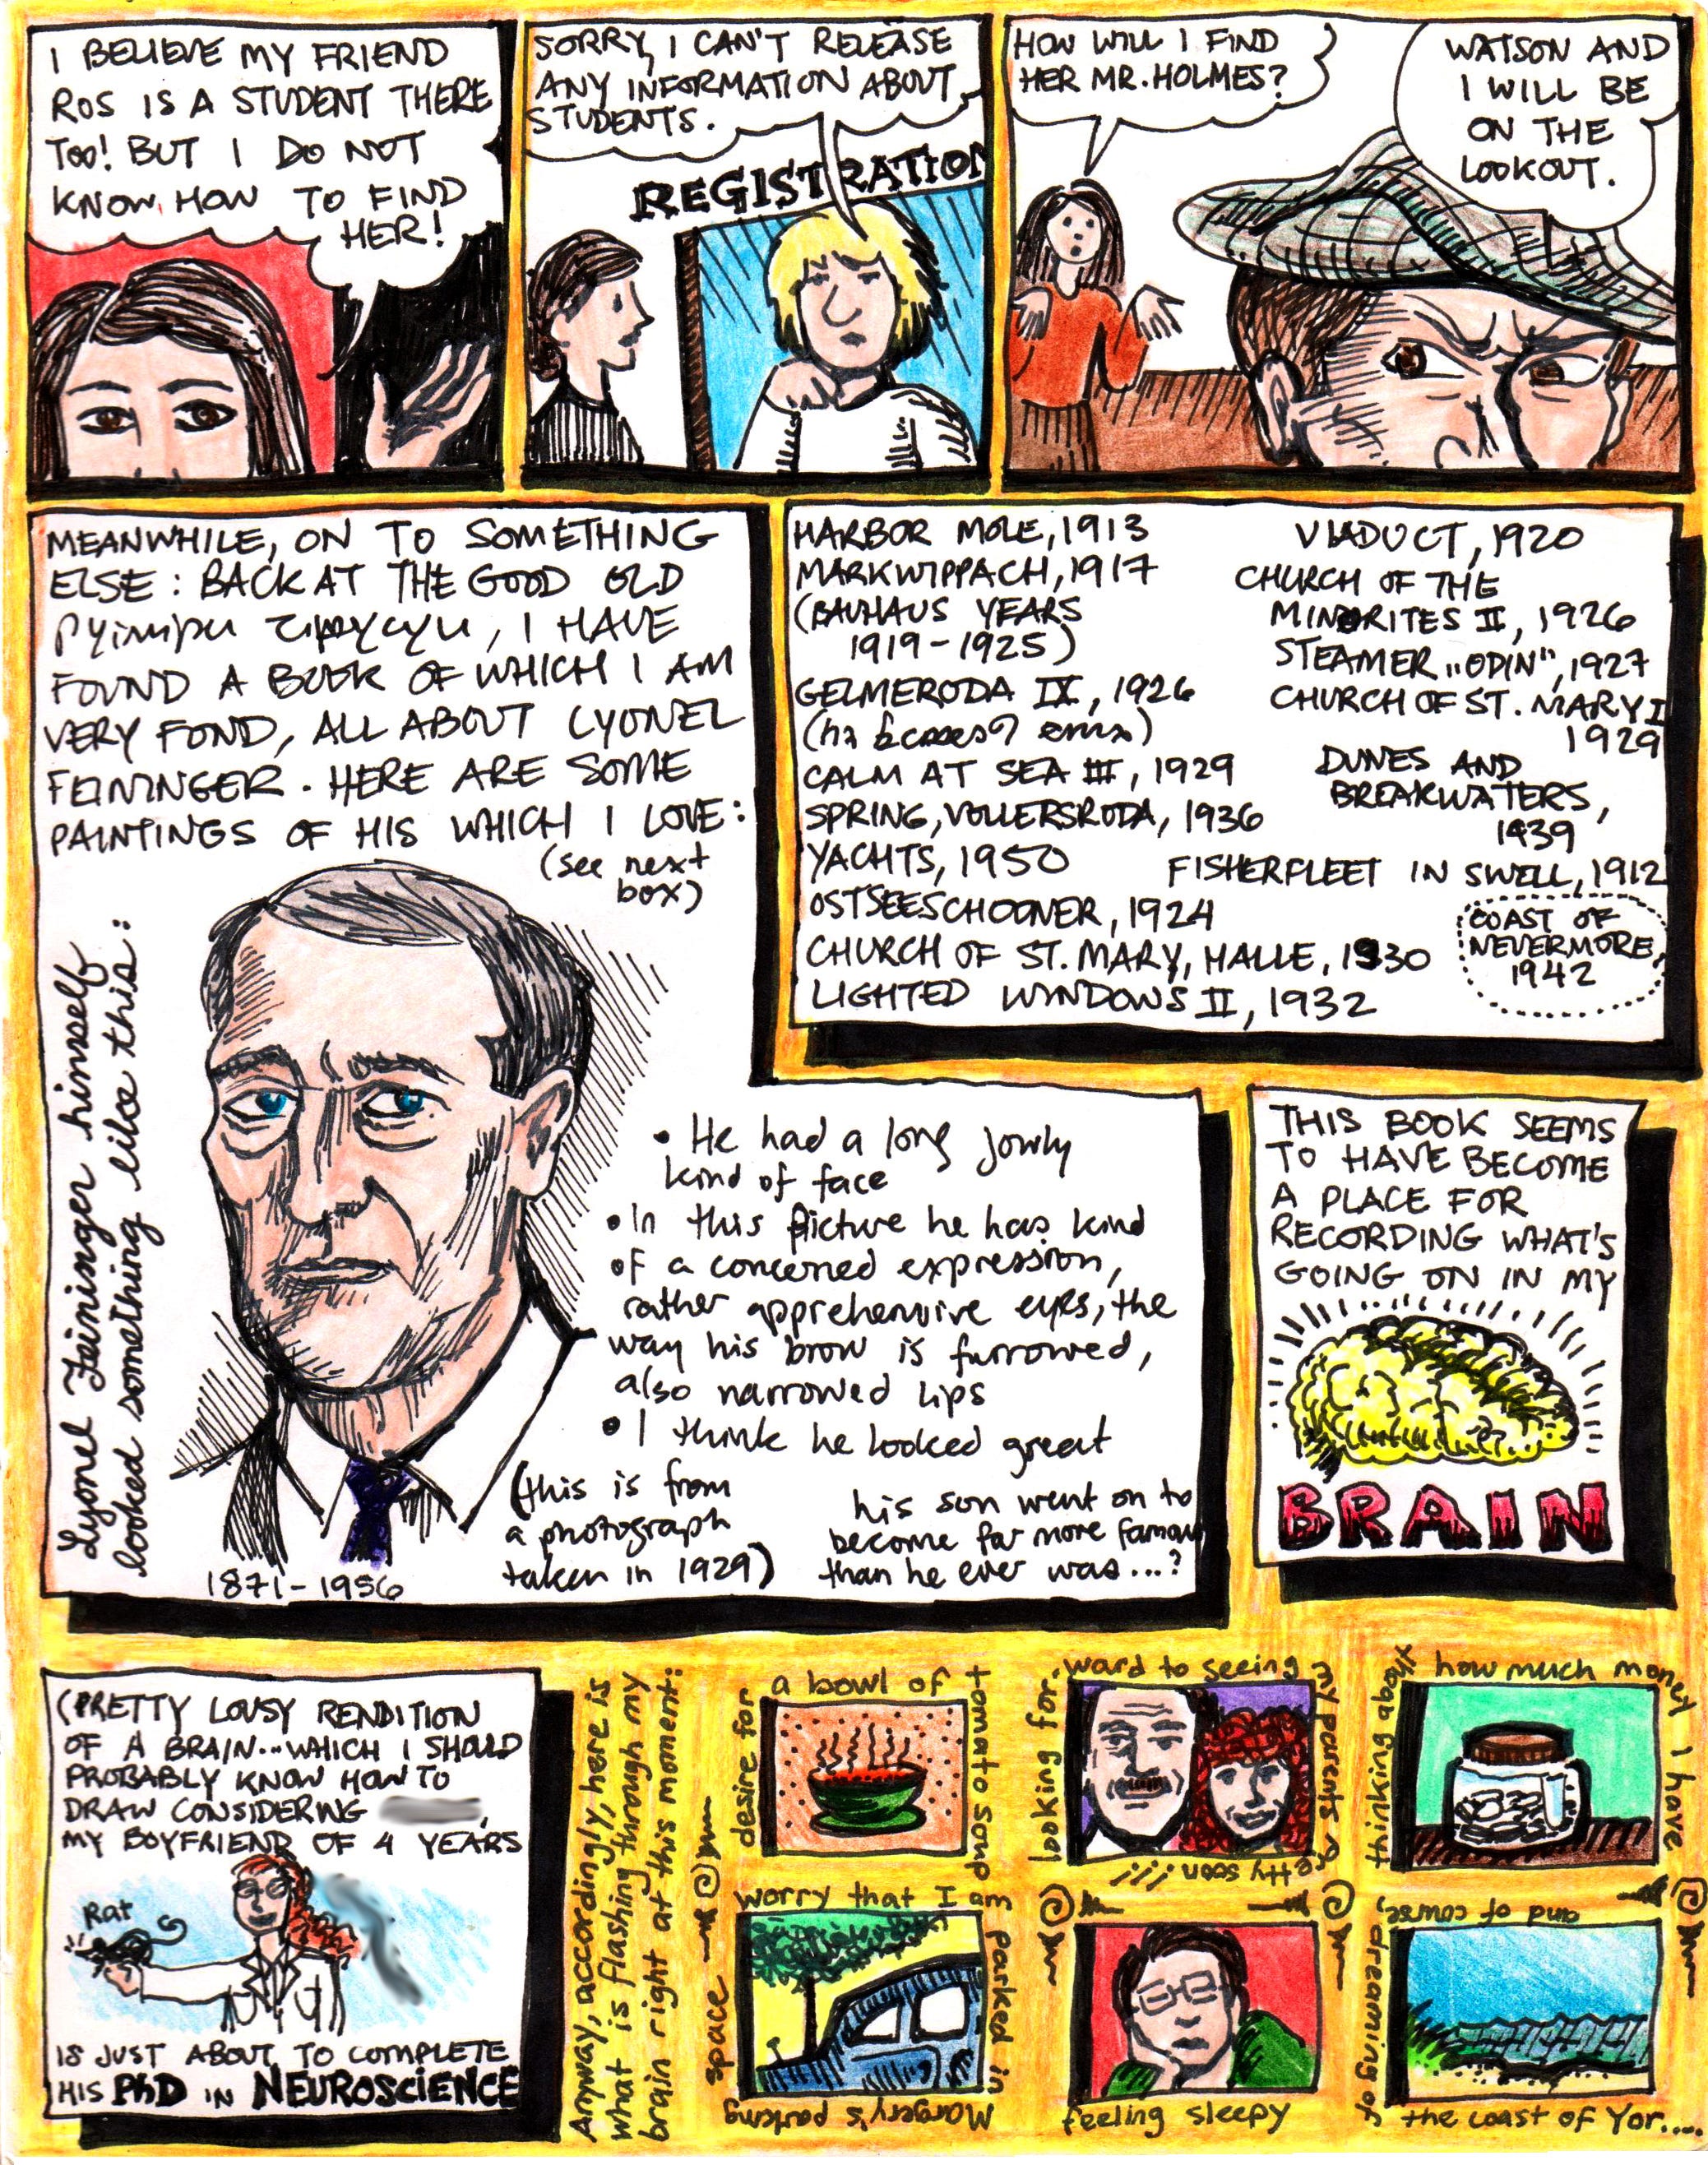 I BELIEVE MY FRIEND
ROS IS A STUDENT THERE
TOO! BUT I DO NOT
KNOW HOW TO FIND
HER!
SORRY, I CAN'T RELEASE
ANY INFORMATION ABOUT
STUDENTS.
REGISTRATION
HOW WILL I FIND
HER MR. HOLMES?
WATSON AND
I WILL BE
ON THE
LOOKOUT.
MEANWHILE, ON TO SOMETHING
ELSE: BACK AT THE GOOD OLD
, I HAVE
FOUND A BOOK OF WHICH I AM
VERY FOND, ALL ABOUT LYONEL
FEININGER. HERE ARE SOME
PAINTINGS OF HIS WHICH I LOVE:
(see next
box)
HARBOR MOLE, 1913
MARKWIPPACH, 1917
(BAUHAUS YEARS
1919-1925)
GELMERODA IX, 1926
CALM AT SEA III, 1929
SPRING, VOLLERSRODA, 1936
YACHTS, 1950
OSTSEESCHOONER, 1924
CHURCH OF ST. MARY, HALLE, 1930
LIGHTED WINDOWS II, 1932
VIADUCT, 1920
CHURCH OF THE
MINORITES II, 1926
STEAMER "ODIN", 1927
CHURCH OF ST. MARY I
1929
DUNES AND
BREAKWATERS,
1939
FISHERFLEET IN SWELL, 1912
COAST OF
NEVERMORE,
1942
Lyonel Feininger himself
looked something like this:
1871-1956
• He had a long jowly
kind of face
• In this picture he has kind
of a concerned expression,
rather apprehensive eyes, the
way his brow is furrowed,
also narrowed lips
• I think he looked great
(this is from
a photograph
taken in 1929)
his son went on to
become far more famous
than he ever was...?
THIS BOOK SEEMS
TO HAVE BECOME
A PLACE FOR
RECORDING WHAT'S
GOING ON IN MY
BRAIN
(PRETTY LOUSY RENDITION
OF A BRAIN... WHICH I SHOULD
PROBABLY KNOW HOW TO
DRAW CONSIDERING ,
MY BOYFRIEND OF 4 YEARS
Rat
IS JUST ABOUT TO COMPLETE
HIS PhD IN NEUROSCIENCE
Anyway, accordingly, here is
what is flashing through my
brain right at this moment:
desire for
a bowl of
tomato soup
looking for-
ward to seeing
my parents pr
etty soon !!!
thinking about
how much money
I have
worry that I am
parked in
Margery's parking
space
feeling sleepy
and of course,
dreaming of
the coast of Yor....